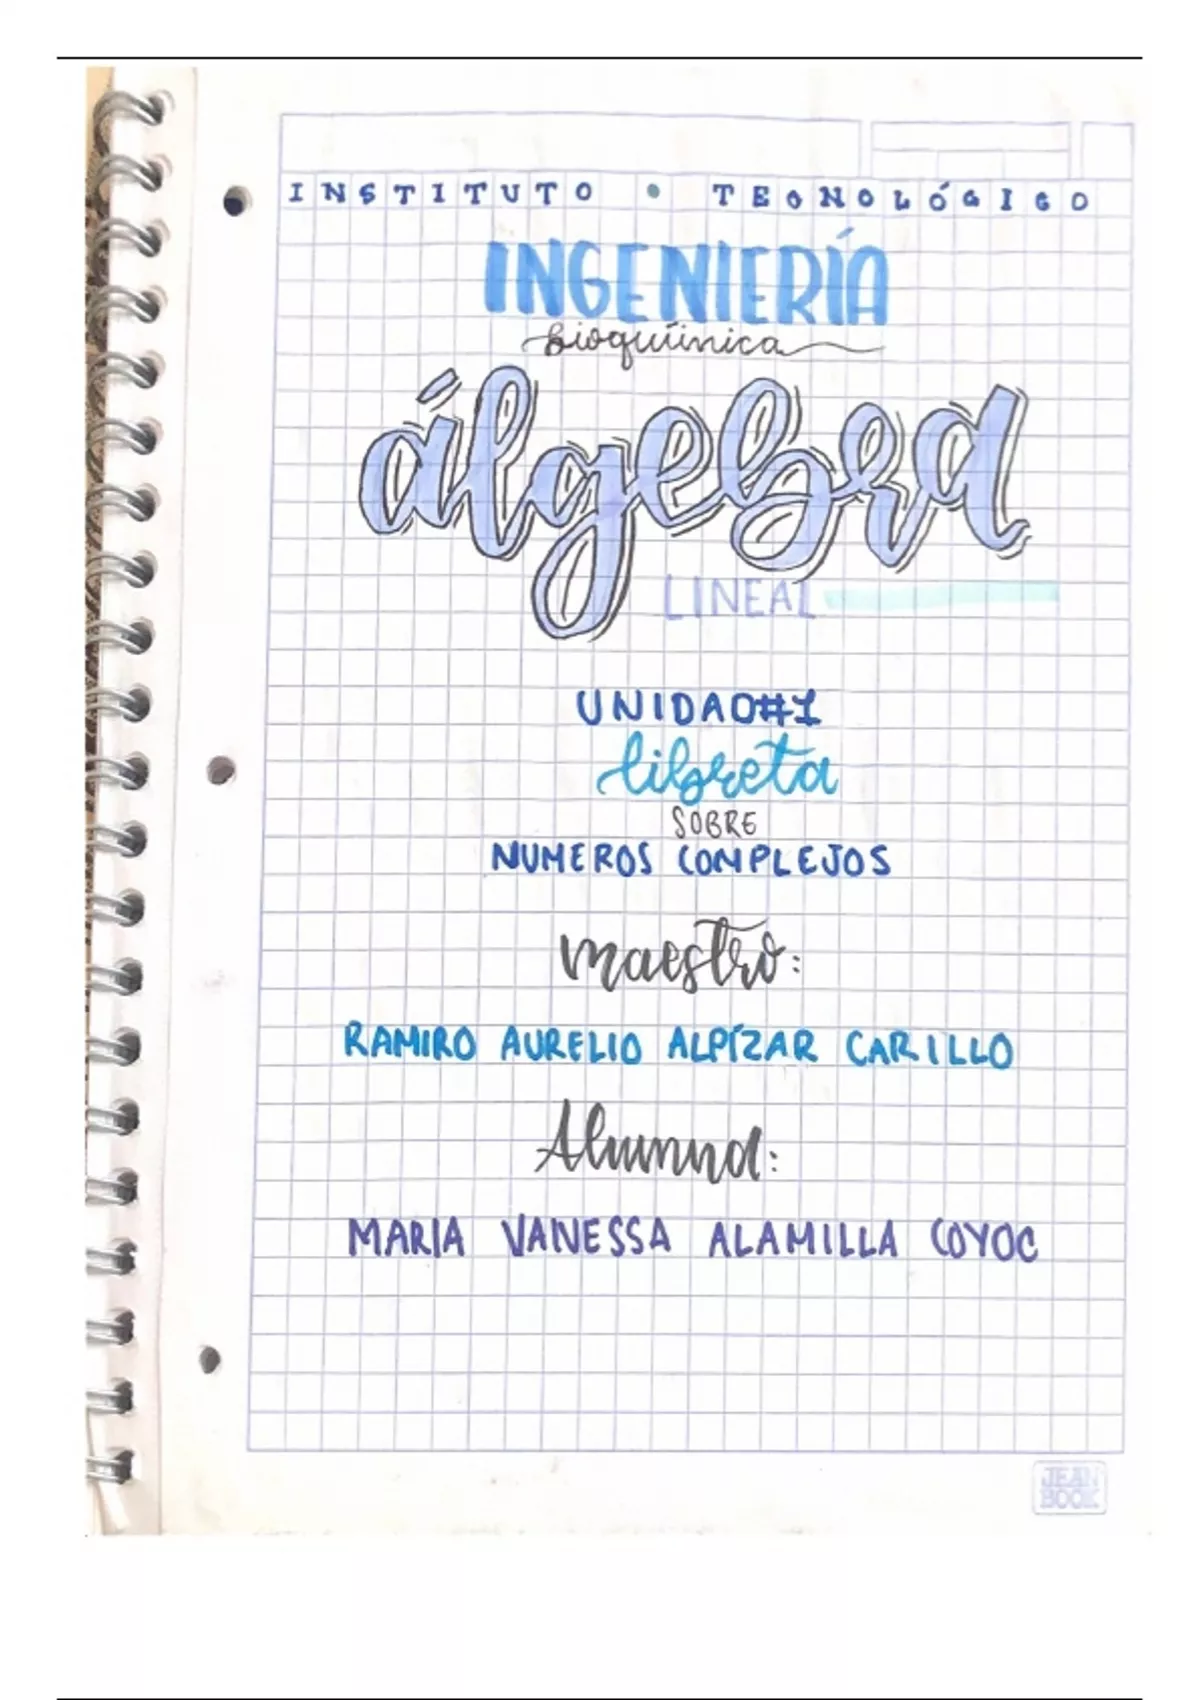 INSTITUTO • TECNOLÓGICO
INGENIERÍA
bioquímica
álgebra
LINEAL
UNIDAD#1
libreta
SOBRE
NUMEROS COMPLEJOS
maestro:
RAMIRO AURELIO ALPÍZAR CARILLO
Alumna:
MARIA VANESSA ALAMILLA COYOC
JEAN
BOOK